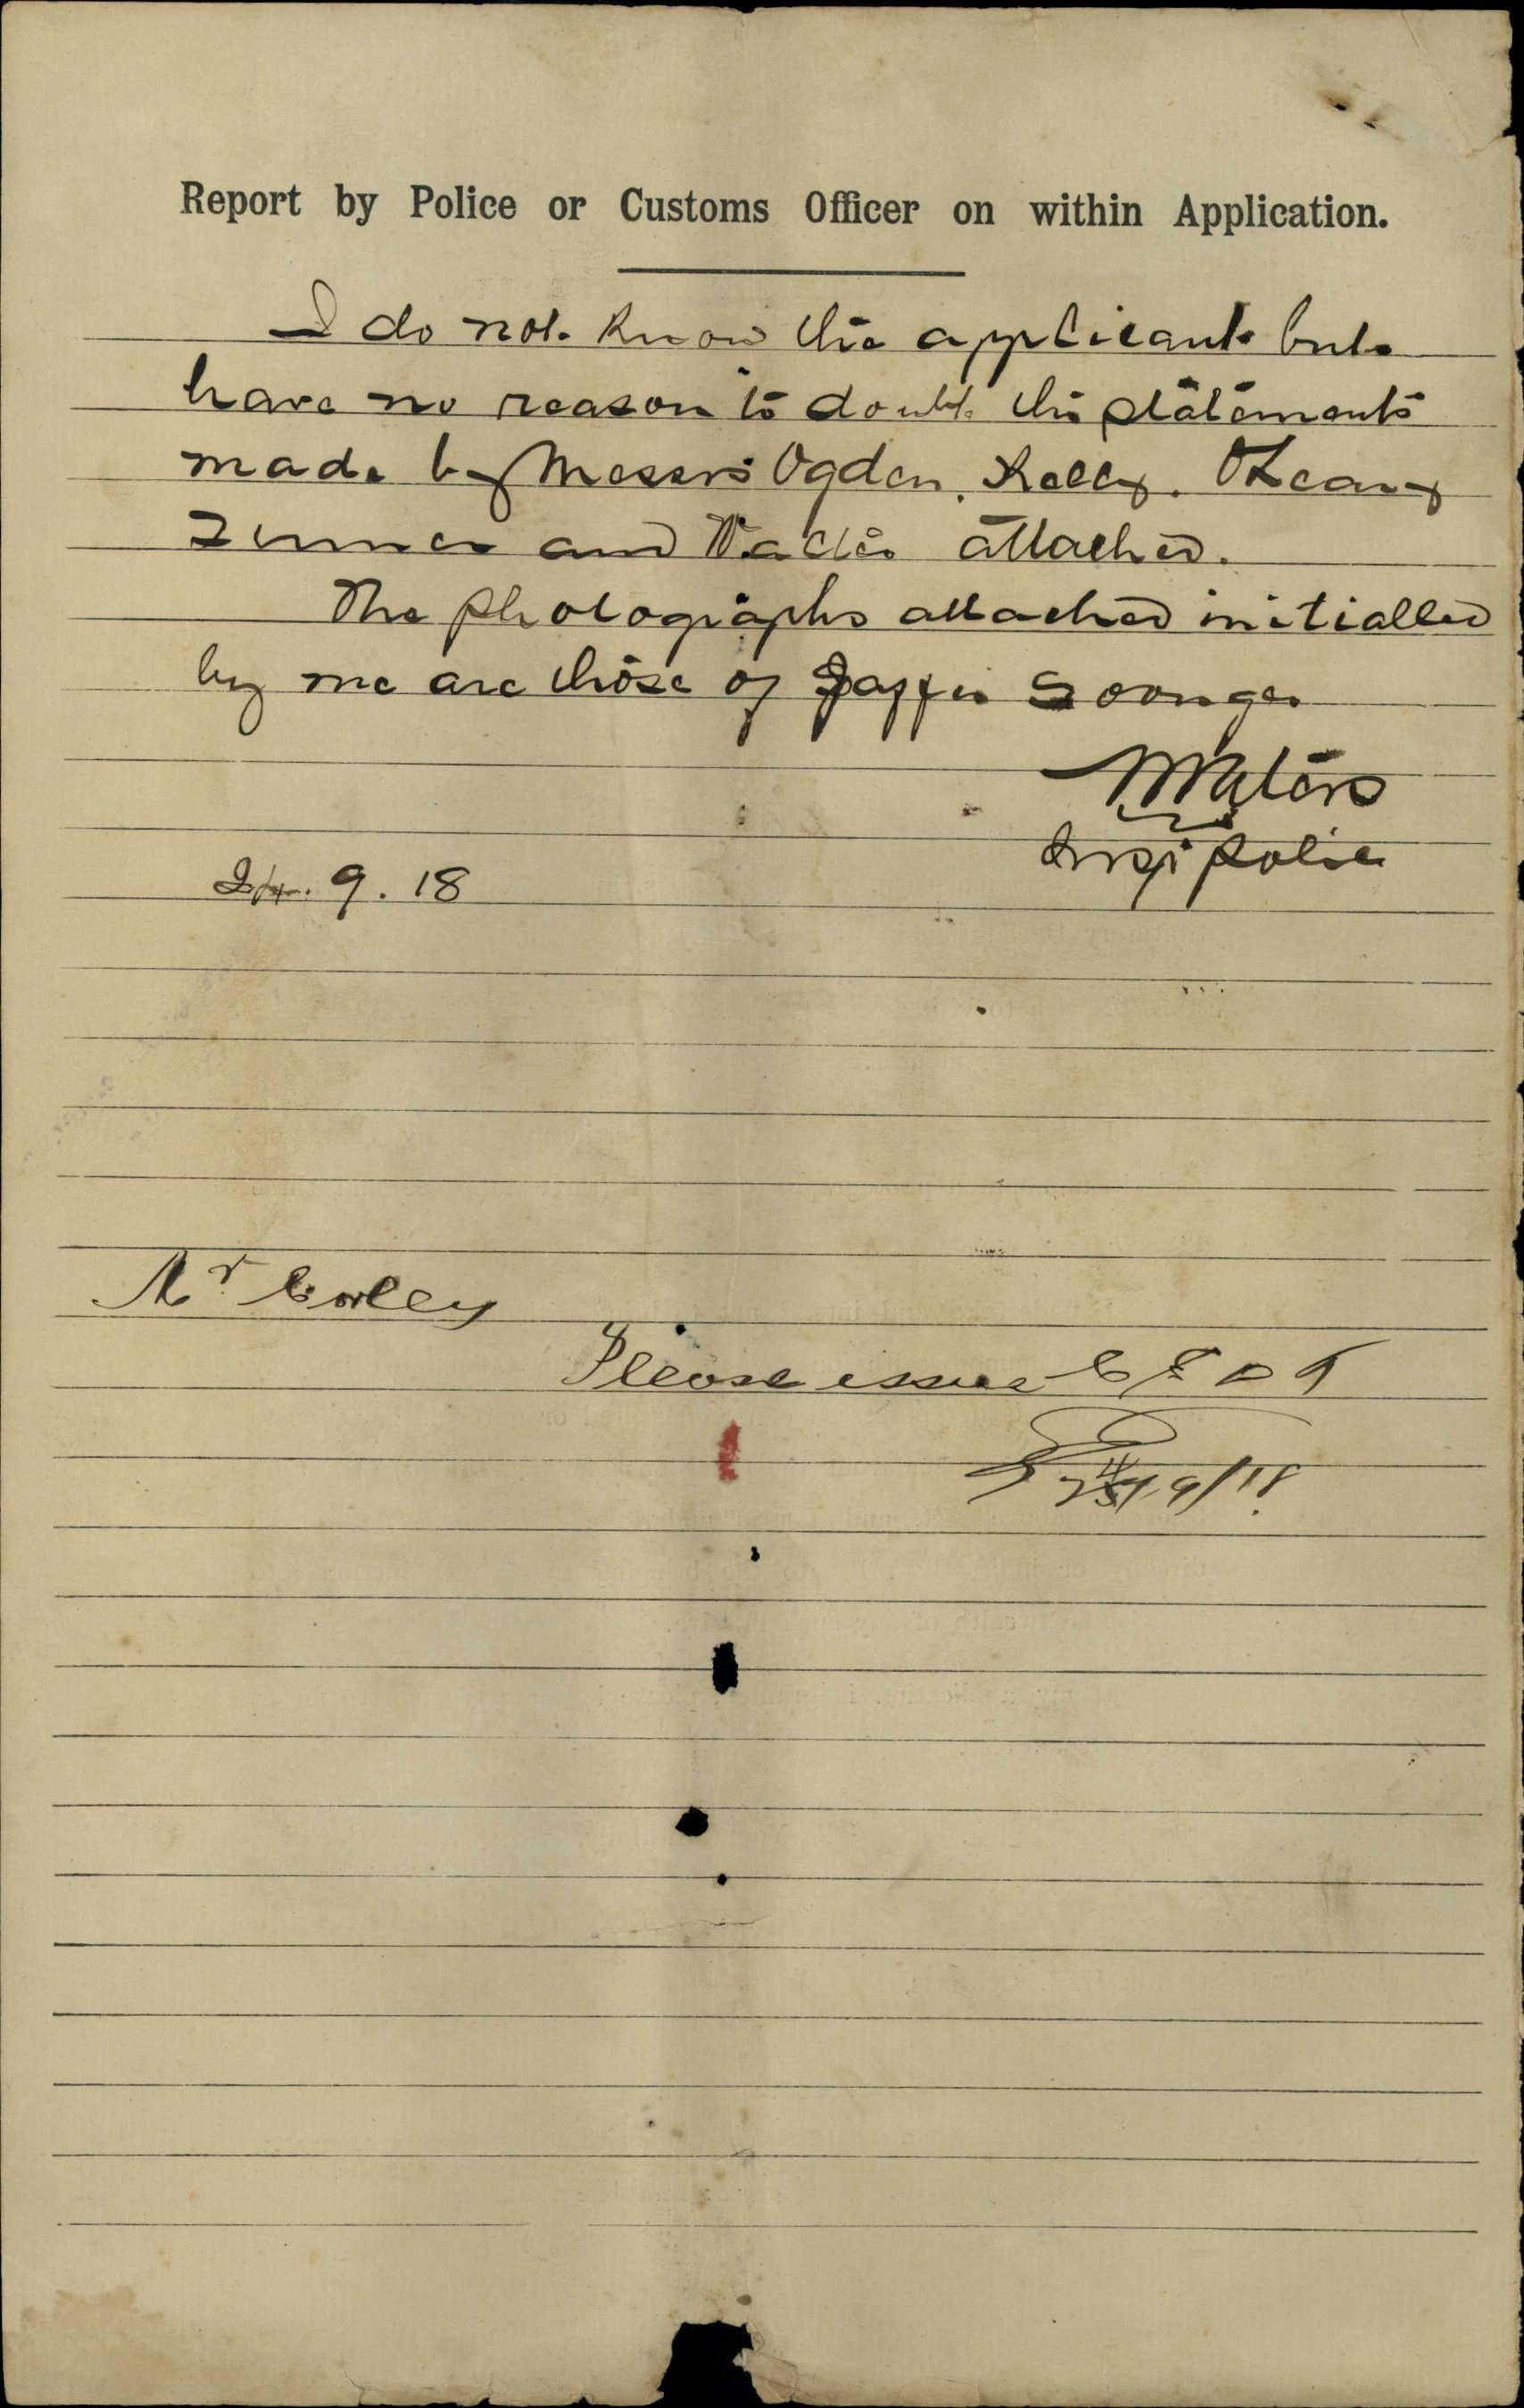 Report by Police or Customs Officer on within Application.
I do not know the applicant but
have no reason to doubt the statements
made by Messrs Ogden, Kelly, OLeary
and attached.
The photographs attached initialled
by me are those of Jaffer
Waters
Insp Police
24. 9. 18
Mr Corley
Please issue C E D T
9/18